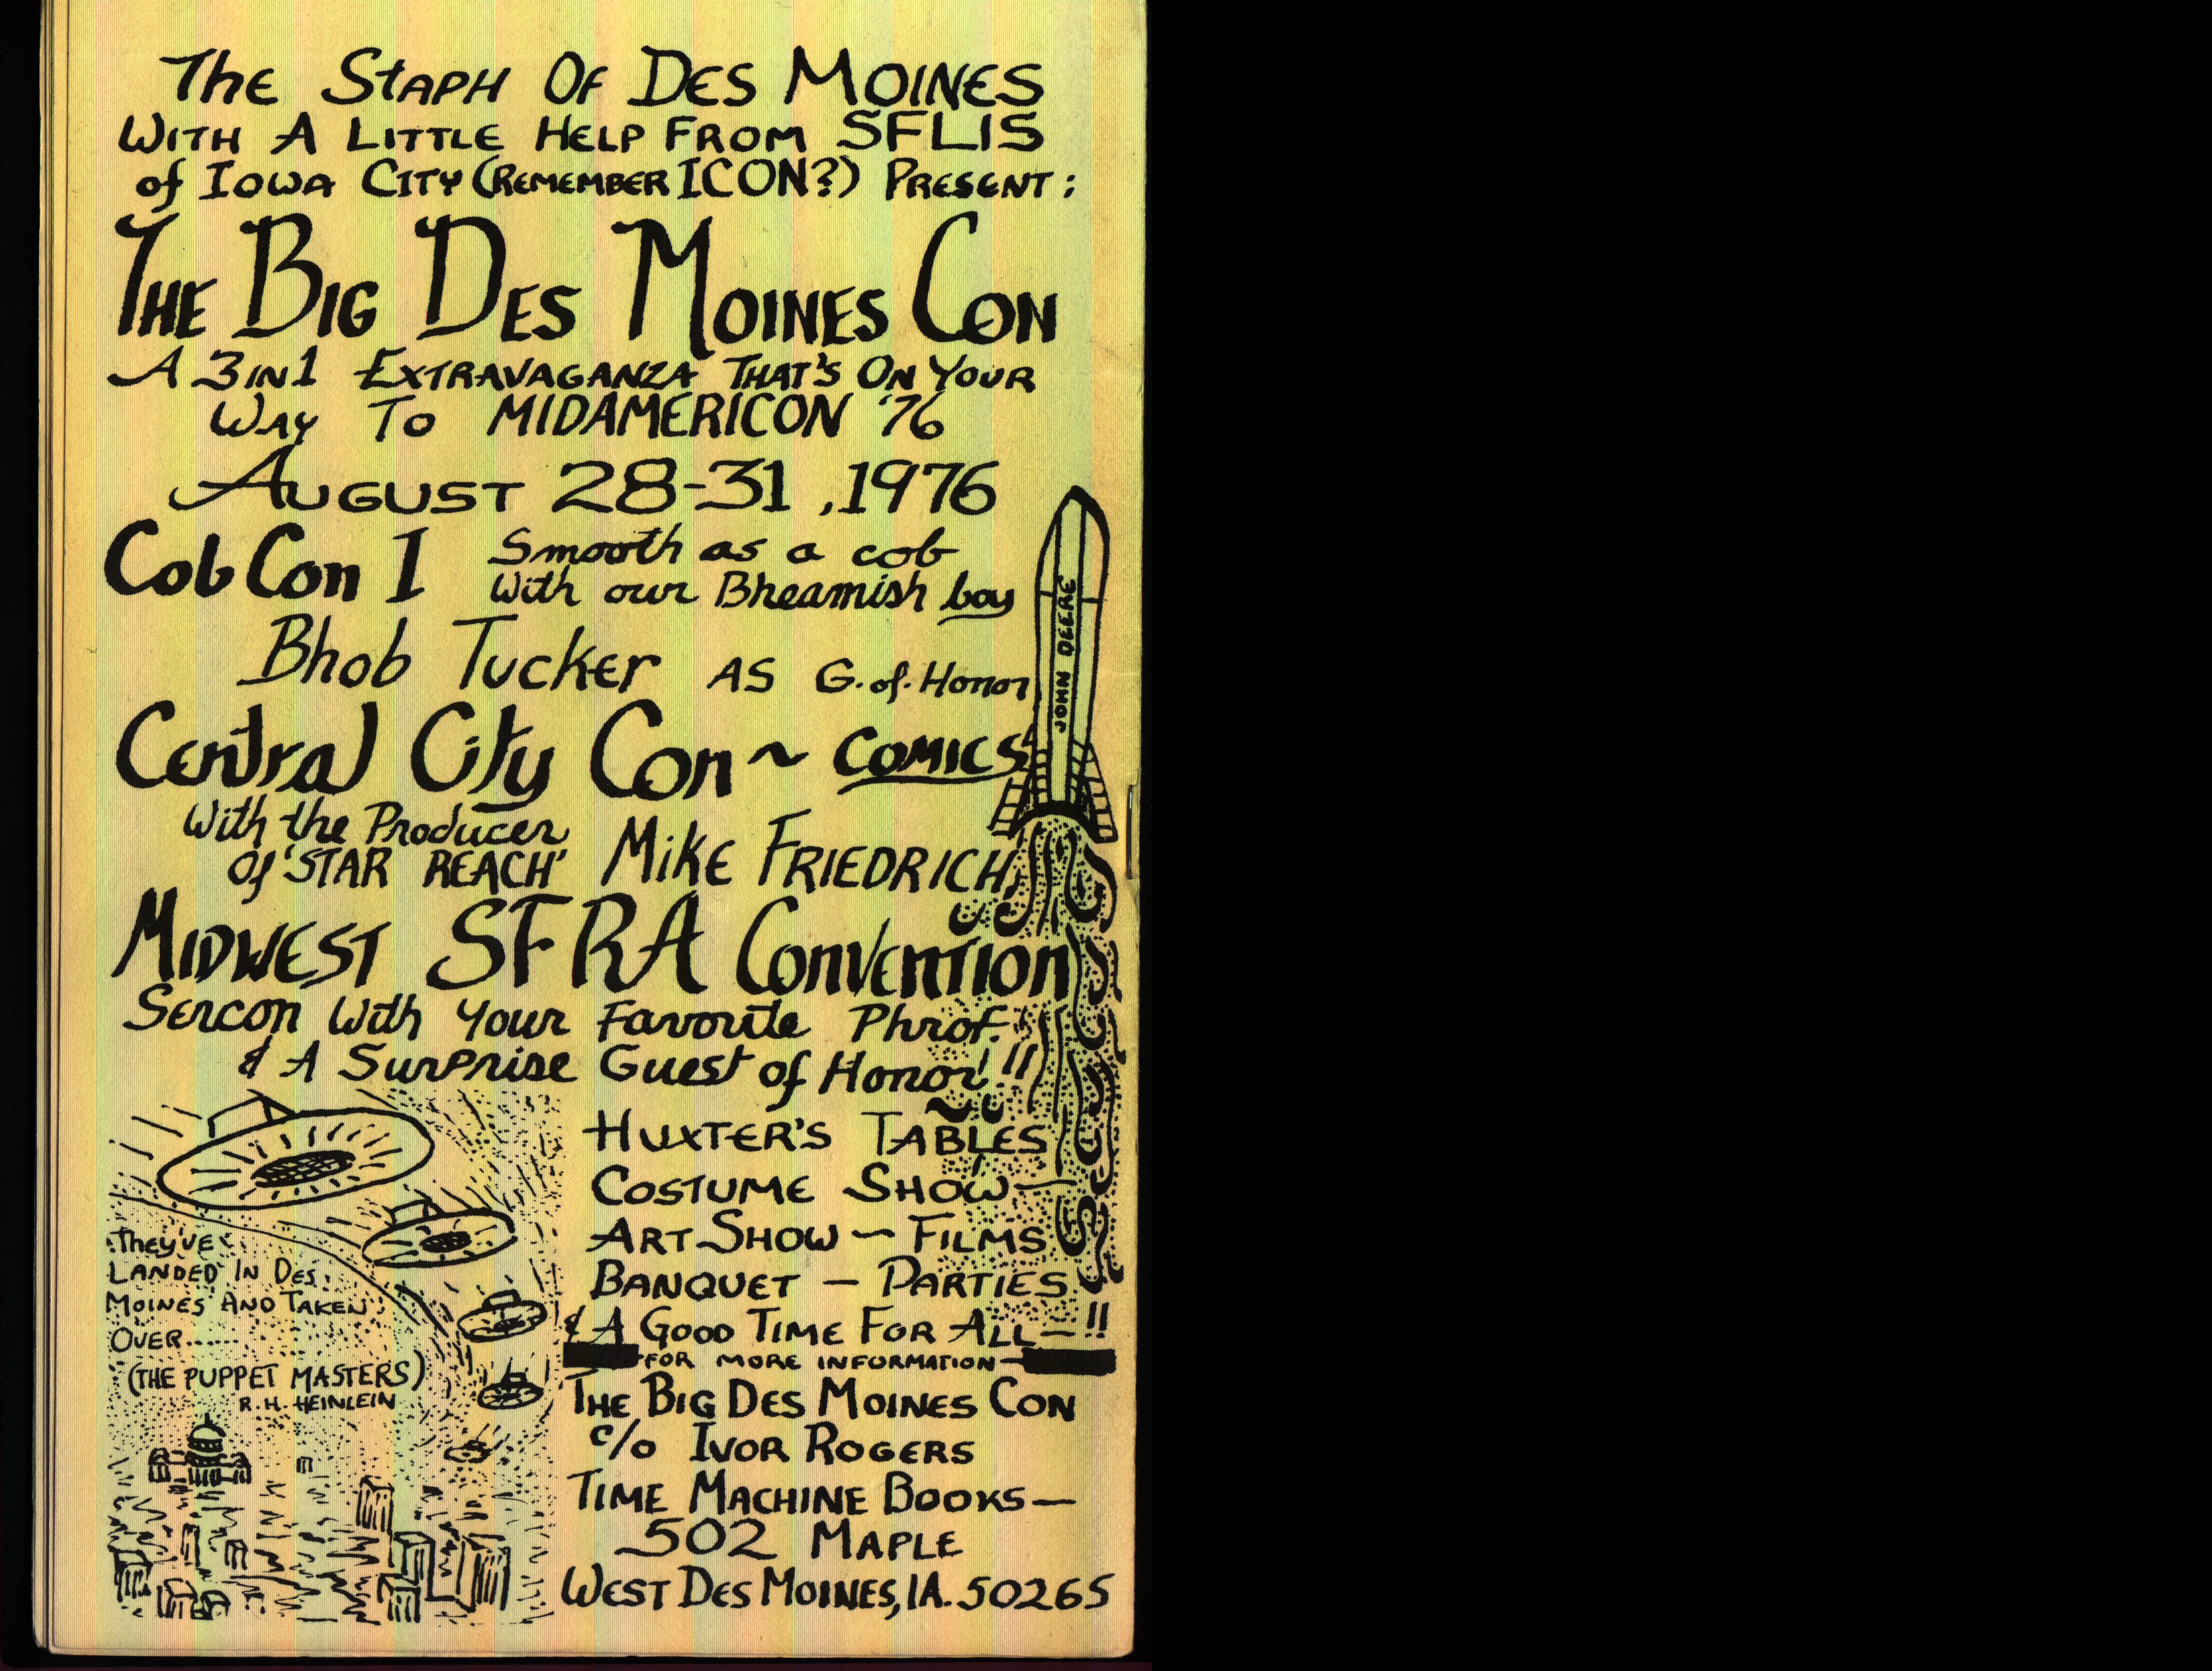 The Staph Of Des Moines
With A Little Help From SFLIS
of Iowa City (Remember ICON?) Present:
The Big Des Moines Con
A 3 in 1 Extravaganza That's On Your
Way To MIDAMERICON '76
August 28-31, 1976
Cob Con I
Smooth as a cob
With our Bheamish boy
Bhob Tucker AS G. of. Honor
Central City Con ~ Comics
With the Producer
Of 'STAR REACH' Mike Friedrich
Midwest SFRA Convention
Sercon With Your Favorite Phrof.
& A Surprise Guest of Honor!!!
JOHN DEERE
They've
Landed In Des
Moines And Taken
Over......
(THE PUPPET MASTERS)
R. H. HEINLEIN
Huxter's Tables
Costume Show —
Art Show — Films
Banquet — Parties
& A Good Time For All — !!
— FOR MORE INFORMATION —
The Big Des Moines Con
c/o Ivor Rogers
Time Machine Books —
502 Maple
West Des Moines, IA. 50265